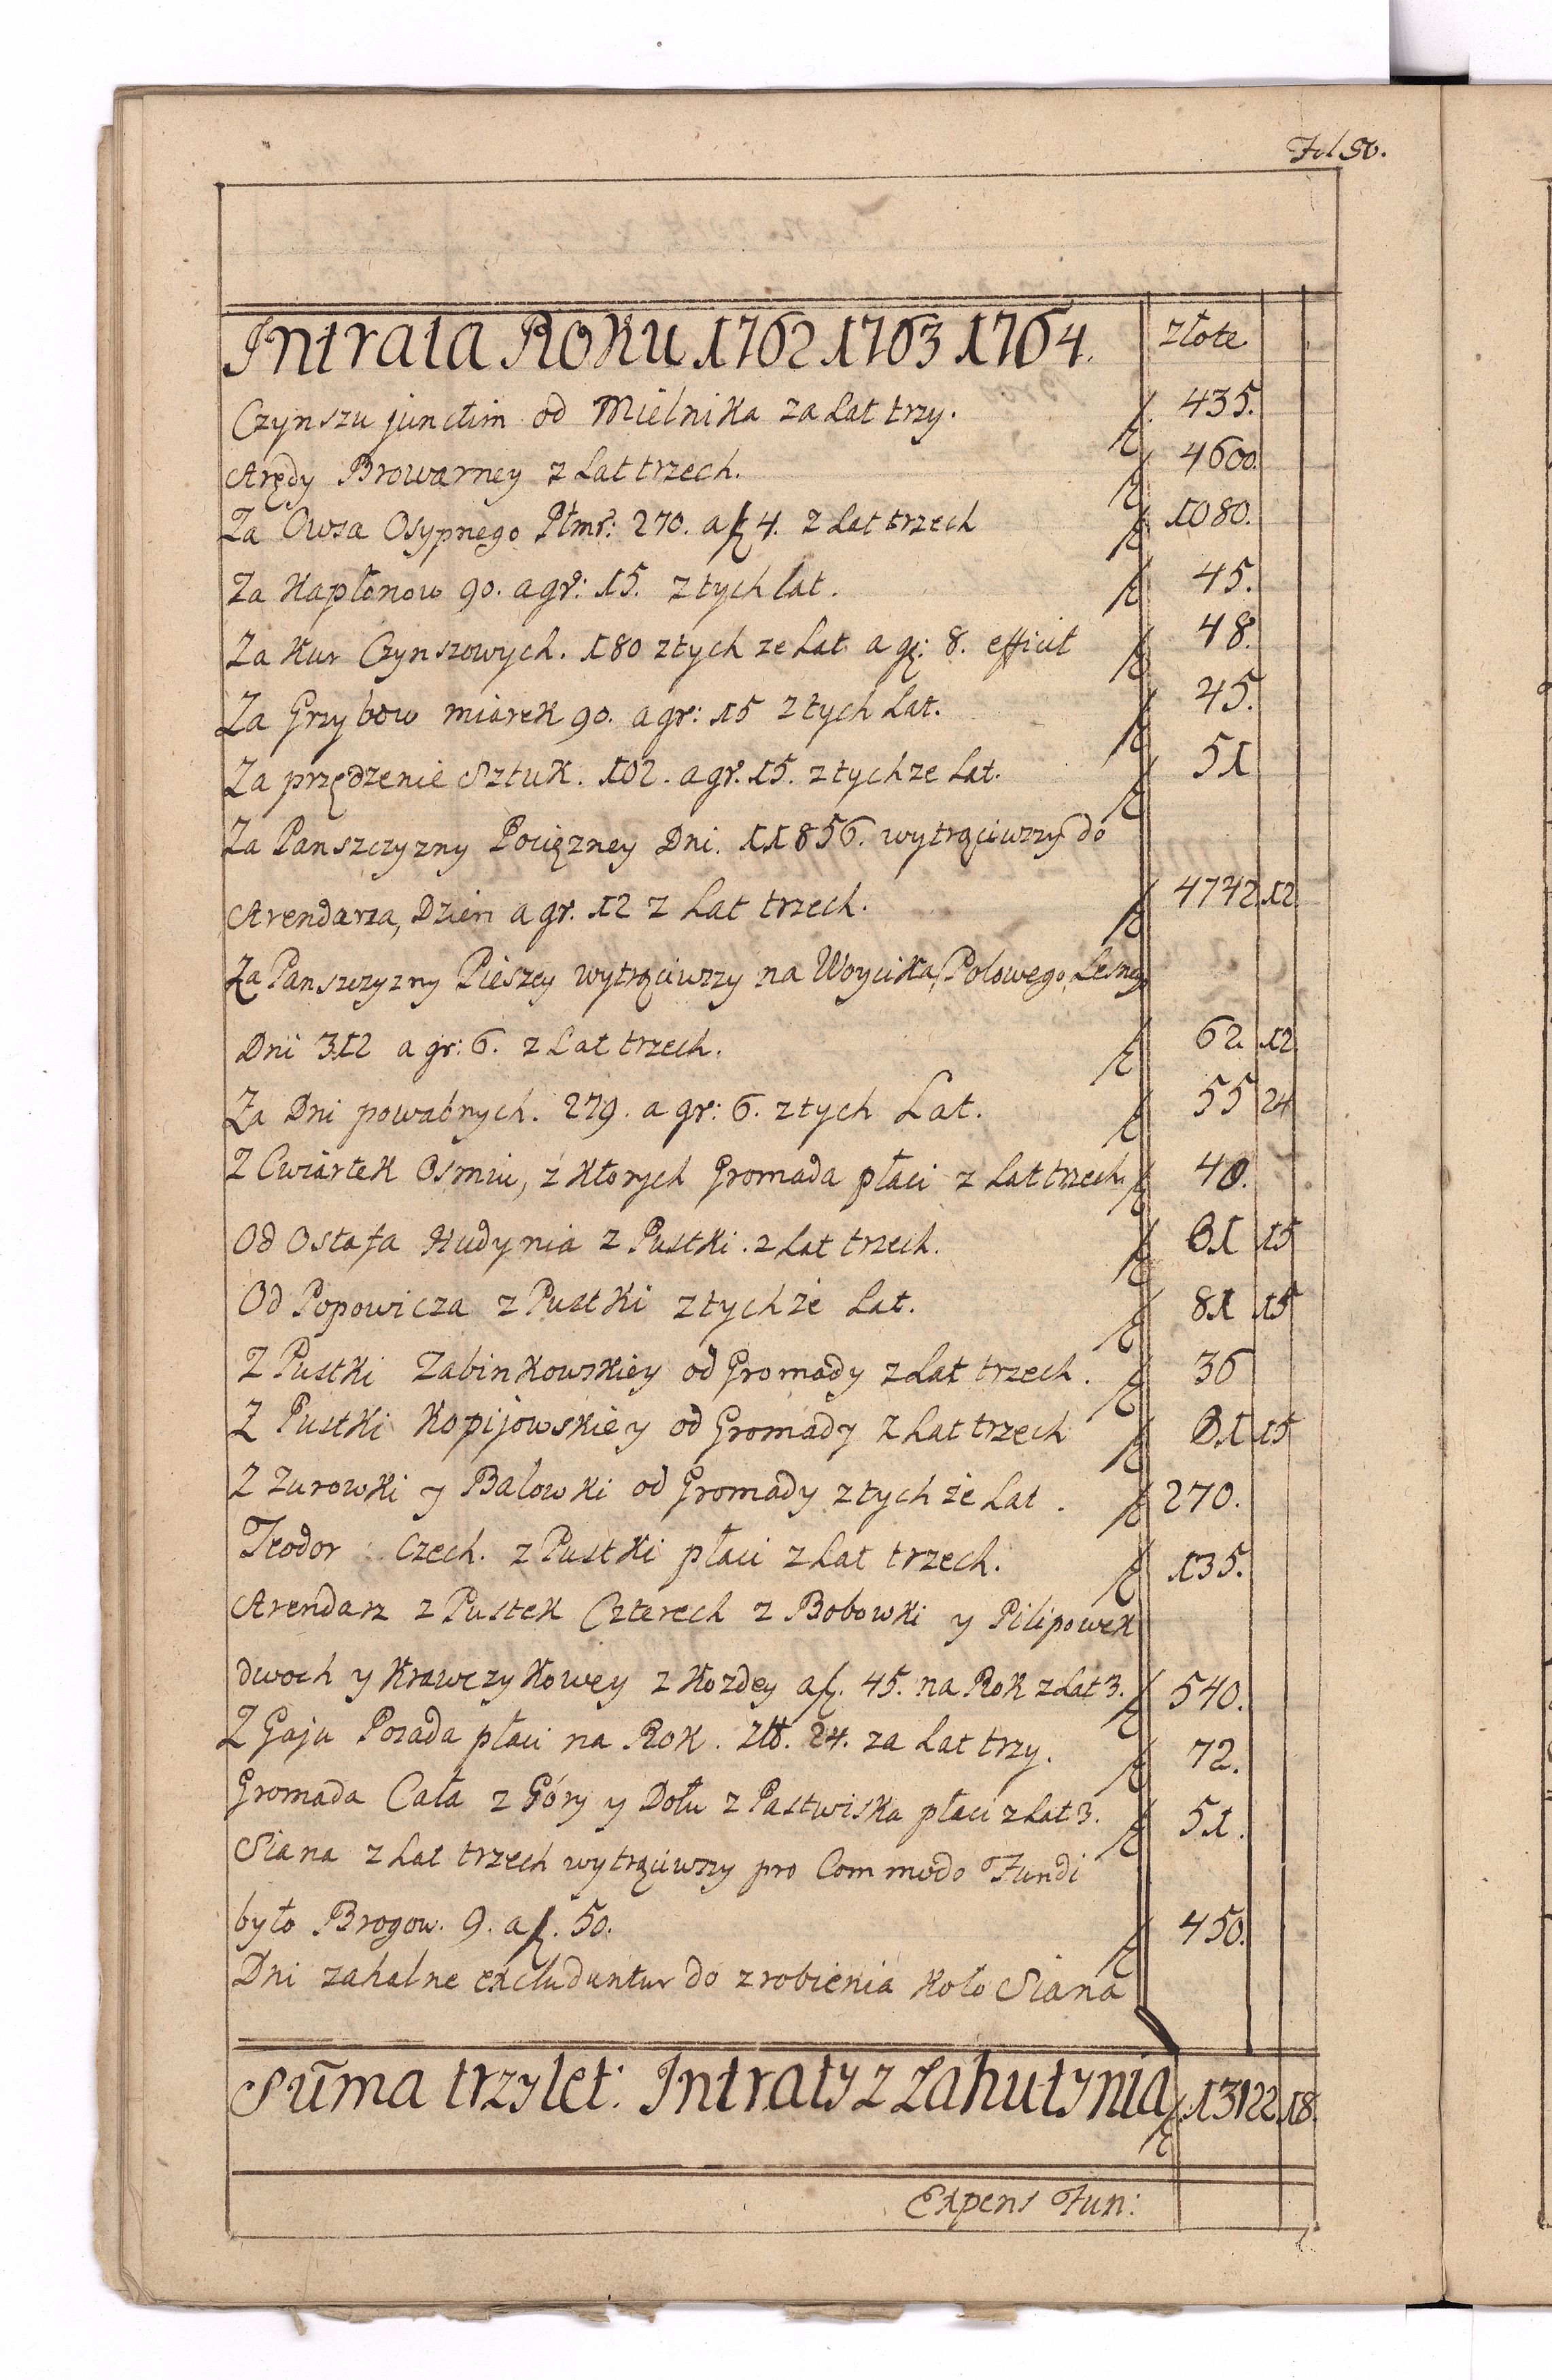 Fol 50.
Intrata Roku 1762 1763 1764. złote
Czynszu junctim od Mielnika za Lat trzy. 435.
Arędy Browarney z Lat trzech. 4600.
Za Owsa Osypnego Płmr: 270. a 4. z Lat trzech 1080.
Za Kapłonow 90. a gr: 15. z tych lat. 45.
Za Kur Czynszowych. 180 z tych ze Lat a gr: 8. efficit 48.
Za Grzybow miarek 90. a gr: 15 z tych Lat. 45.
Za przędzenie Sztuk. 102. a gr. 15. z tychze Lat. 51
Za Panszczyzny Pociężney Dni. 11856. wytrąciwszy do
Arendarza, Dzien a gr. 12 z Lat trzech. 4742 12
Za Panszczyzny Pieszey wytrąciwszy na Woycika, Polowego, Lesneg
Dni 312 a gr: 6. z Lat trzech. 62. 12
Za Dni powabnych. 279. a gr: 6. z tych Lat. 55 24
Z Cwiartek Osmiu, z ktorych Gromada płaci z Lat trzech. 40.
Od Ostafa Hudynia z Pustki. z Lat trzech. 81 15
Od Popowicza z Pustki z tychże Lat. 81 15
Z Pustki Zabinkowskiey od Gromady z Lat trzech. 36
Z Pustki Kopijowskiey od Gromady z Lat trzech 81 15
Z Zurowki y Balowki od Gromady z tych że Lat. 270.
Teodor Czech. z Pustki płaci z Lat trzech. 135.
Arendarz z Pustek Czterech z Bobowki y Pilipowek
dwoch y Krawczykowey z Kozdey a 45. na Rok z Lat 3. 540.
Z Gaju Posada płaci na Rok. Złt. 24. za Lat trzy. 72.
Gromada Cała z Góry y Dołu z Pastwiska płaci z Lat 3. 51.
Siana z Lat trzech wytrąciwszy pro Commodo Fundi
było Brogow. 9. a 50. 450.
Dni zahalne excluduntur do zrobienia koło Siana
Sum̃a trzylet: Intraty z Zahutynia 13122 18.
Expens Fun: